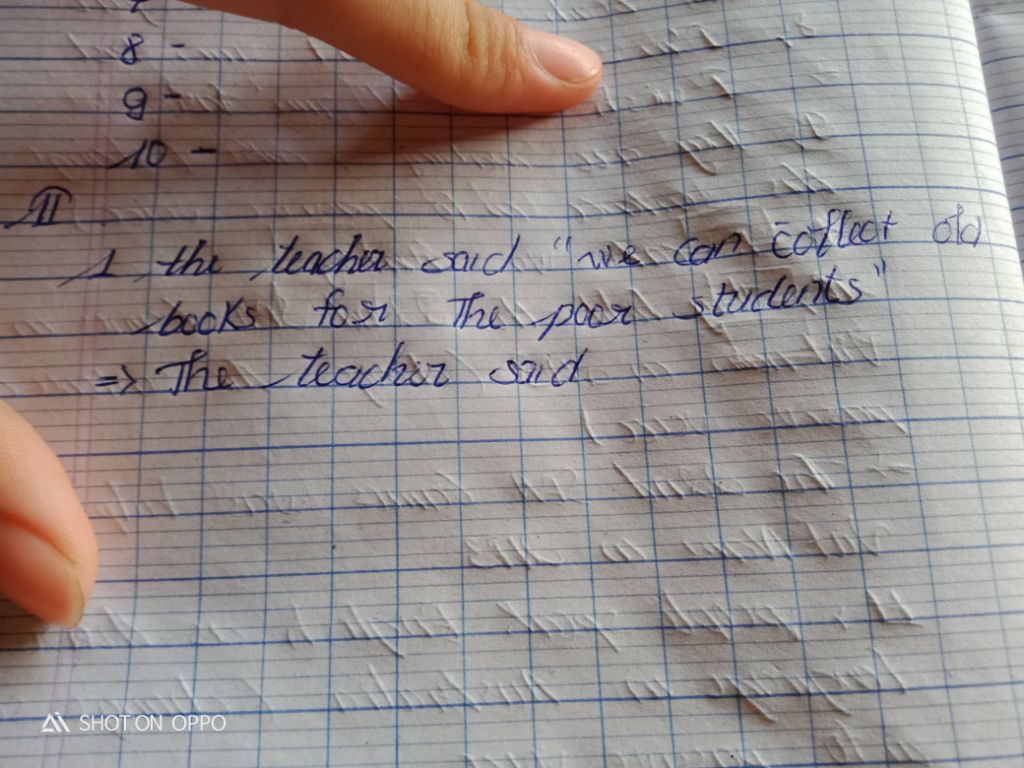 8 -
9 -
10 -
II
1 the teacher said "we can collect old
books for The poor students"
=> The teacher said
SHOT ON OPPO